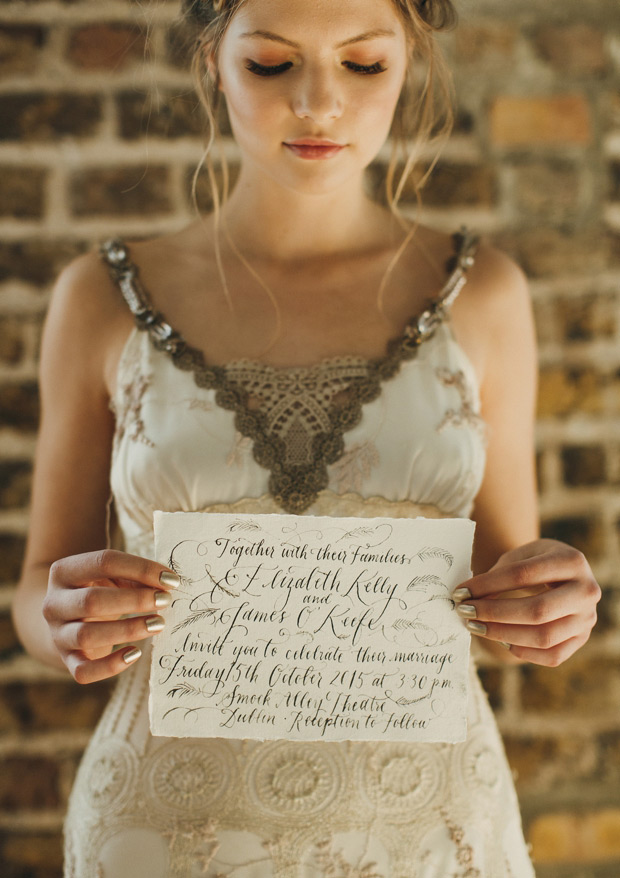 Together with their Families
Elizabeth Kelly
and
James O'Keefe
Invite you to celebrate their marriage
Friday 15th October 2015 at 3:30 p.m
Smock Alley Theatre
Dublin · Reception to follow